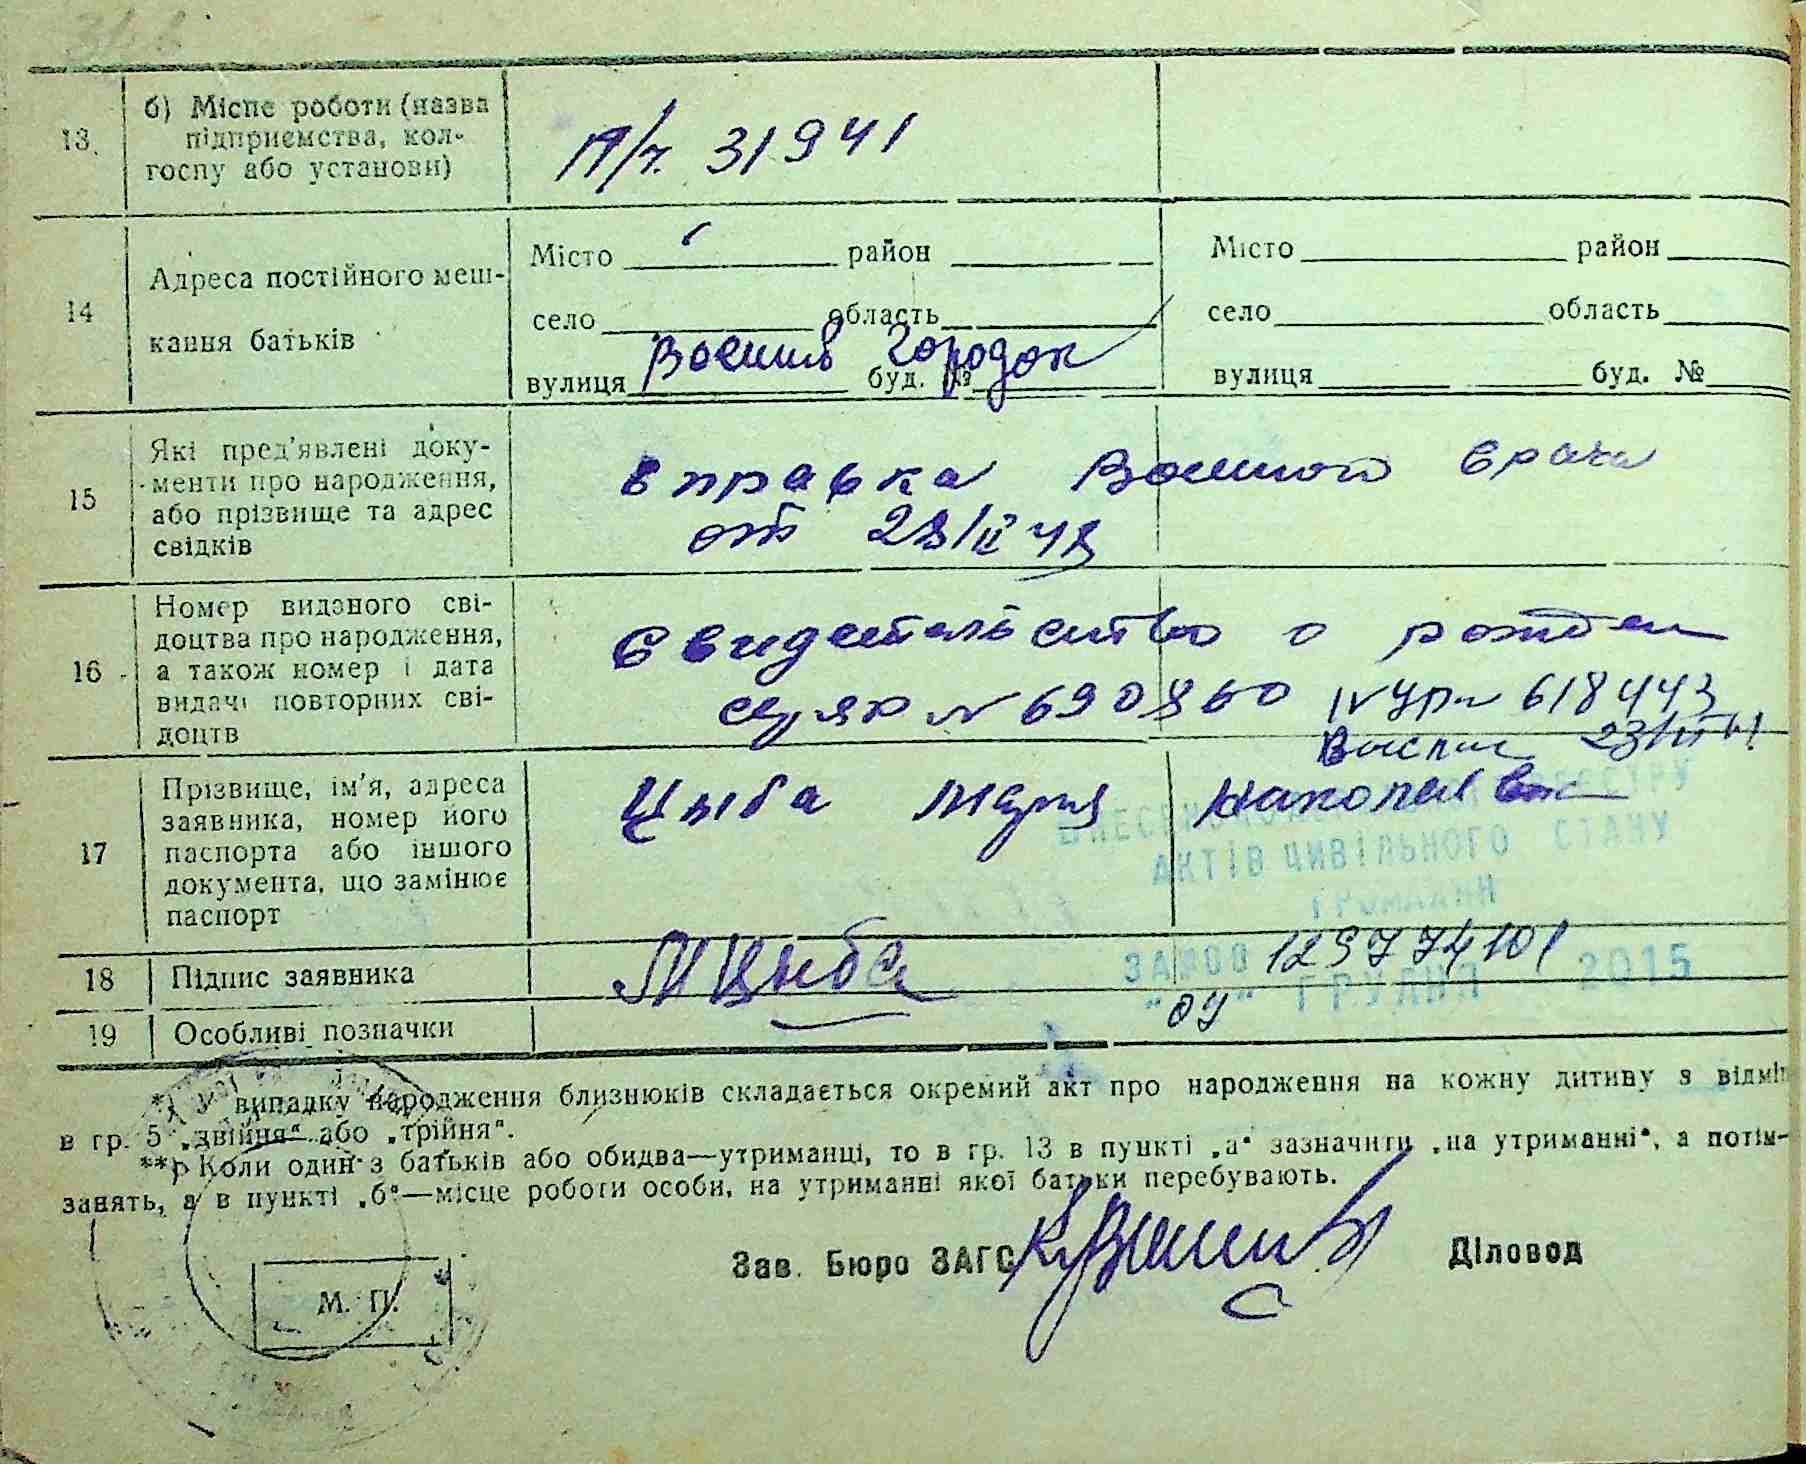 13. б) Місце роботи (назва підприємства, колгоспу або установи) П/ч. 31941
14 Адреса постійного мешкання батьків
Місто район Місто район
село область село область
вулиця Военный Городок буд. № вулиця буд. №
15 Які пред'явлені документи про народження, або прізвище та адрес свідків
справка Военного врача
от 28/II 48
16 Номер виданого свідоцтва про народження, а також номер і дата видачі повторних свідоцтв
Свидетельство о рожден
серяю № 690860 IV УР № 618443
23/III 61
17 Прізвище, ім'я, адреса заявника, номер його паспорта або іншого документа, що замінює паспорт
Цыба Мария
АКТІВ ЦИВІЛЬНОГО СТАНУ
ГРОМАДЯН
18 Підпис заявника МЦыба
ГРУДНЯ 2015
19 Особливі позначки
*) У випадку народження близнюків складається окремий акт про народження на кожну дитину з відміт
в гр. 5 „двійня" або „трійня".
**) Коли один з батьків або обидва—утриманці, то в гр. 13 в пункті „а" зазначити „на утриманні", а потім-
занять, а в пункті „б"—місце роботи особи, на утриманні якої батьки перебувають.
Зав. Бюро ЗАГС Діловод
М. П.